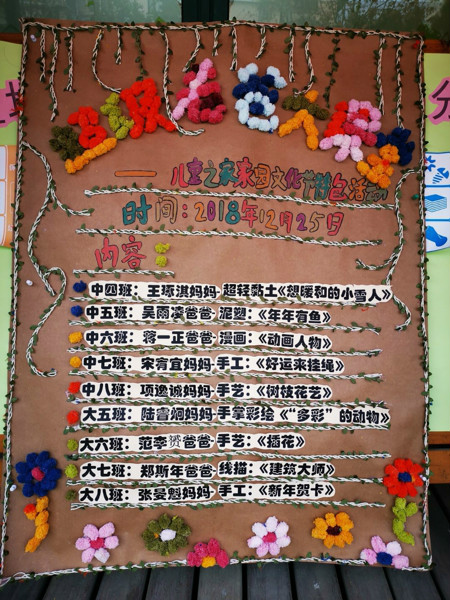 —— 儿童之家家园文化节活动
时间：2018年12月25日
内容：
中四班：王琢淇妈妈-超轻黏土《想暖和的小雪人》
中五班：吴雨凌爸爸-泥塑：《年年有鱼》
中六班：蒋一正爸爸-漫画：《动画人物》
中七班：宋有宜妈妈-手工：《好运来挂绳》
中八班：项逸诚妈妈-手艺：《树枝花艺》
大五班：陆睿炯妈妈-手掌彩绘《“多彩”的动物》
大六班：范李赟爸爸-手艺：《插花》
大七班：郑斯年爸爸-线描：《建筑大师》
大八班：张晏魁妈妈-手工：《新年贺卡》
分